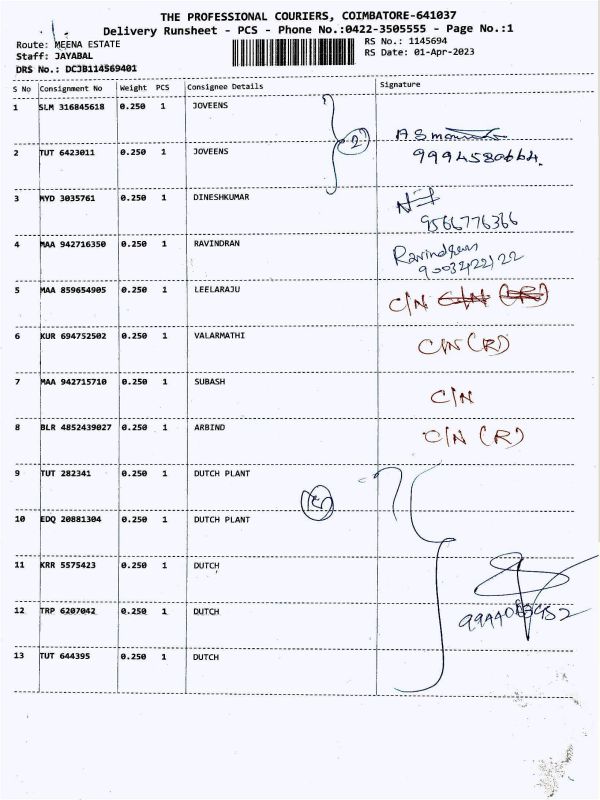 THE PROFESSIONAL COURIERS, COIMBATORE-641037
Delivery Runsheet - PCS - Phone No.:0422-3505555 - Page No.:1
Route: MEENA ESTATE
RS No.: 1145694
Staff: JAYABAL
RS Date: 01-Apr-2023
DRS No.: DCJB114569401
S No Consignment No Weight PCS Consignee Details Signature
1 SLM 316845618 0.250 1 JOVEENS
2
2 TUT 6423011 0.250 1 JOVEENS
9994580664.
3 MYD 3035761 0.250 1 DINESHKUMAR
9566776366
4 MAA 942716350 0.250 1 RAVINDRAN Ravindran
9003422122
5 MAA 859654905 0.250 1 LEELARAJU C/N C/N (R)
6 KUR 694752502 0.250 1 VALARMATHI C/N (R)
7 MAA 942715710 0.250 1 SUBASH C/N
8 BLR 4852439027 0.250 1 ARBIND C/N (R)
9 TUT 282341 0.250 1 DUTCH PLANT
10 EDQ 20881304 0.250 1 DUTCH PLANT
11 KRR 5575423 0.250 1 DUTCH
12 TRP 6207042 0.250 1 DUTCH
13 TUT 644395 0.250 1 DUTCH